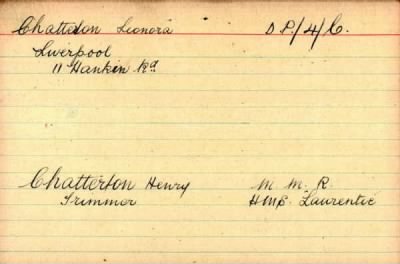 Chatterton Leonora D.P./4/C.
Liverpool
11 Hankin Rd
Chatterton Henry M. M. R.
Trimmer HMS. Laurentic